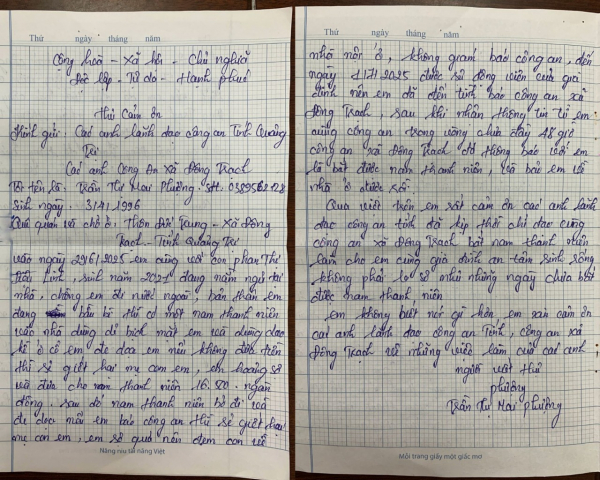 Thứ ngày tháng năm
Cộng hoà - Xã hội - Chủ nghĩa
Độc lập - Tự do - Hạnh phúc
Thư Cảm ơn
Kính gửi: Các anh lãnh đạo công an Tỉnh Quảng
Trị
Các anh Công An Xã Đông Trạch
Tôi tên là: Trần Thị Mai Phương. sđt.
Sinh ngày: 3/4/1996
Quê quán và chỗ ở: Thôn Đức Trung - Xã Đông
Trạch - Tỉnh Quảng Trị
vào ngày 29/6/2025 em cùng với con phan Thị
sinh năm 2021 đang nằm ngủ tại
nhà, chồng em đi nước ngoài, bản thân em
đang bầu bí thì có một nam thanh niên
vào nhà dùng bịch mặt em và dùng dao
kề ở cổ em đe dọa em nếu không đưa tiền
thì sẽ giết hai mẹ con em, em hoảng sợ
và đưa cho nam thanh niên 16.500. ngàn
đồng. sau đó nam thanh niên bỏ đi và
đe dọc nếu em báo công an thì sẽ giết hai
mẹ con em, em sợ quá nên đem con về
Nâng niu tài năng Việt
Thứ ngày tháng năm
nhà nội ở, không giám báo công an, đến
ngày 11/7/2025 được sự động viên của gia
đình nên em đã đến trình báo công an xã
Đông Trạch, sau khi nhận thông tin từ em
cùng công an trong vòng chưa đầy 48 giờ
công an xã Đông Trạch đã thông báo với em
là bắt được nam thanh niên, và bảo em về
nhà ở được rồi.
Qua viết trên em rất cảm ơn các anh lãnh
đạo công an tỉnh đã kịp thời chỉ đạo cùng
công an xã Đông Trạch bắt nam thanh niên
làm cho em cùng gia đình an tâm sinh sống
không phải lo sợ như những ngày chưa bắt
được nam thanh niên
em không biết nói gì hơn, em xin cảm ơn
các anh lãnh đạo công an Tỉnh, công an xã
Đông Trạch về những việc làm của các anh
người viết thư
phương
Trần Thị Mai phương
Môi trang giấy một giấc mơ